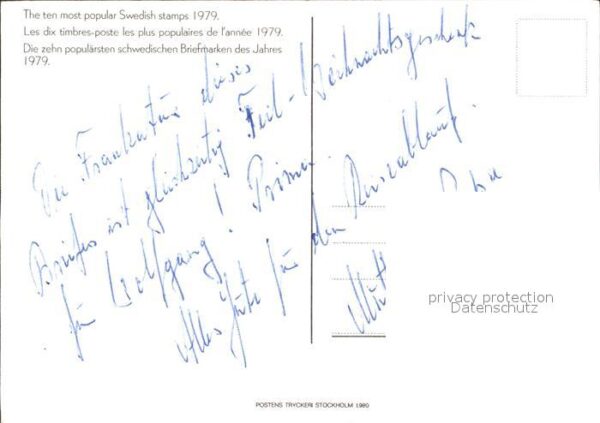 The ten most popular Swedish stamps 1979.
Les dix timbres-poste les plus populaires de l'année 1979.
Die zehn populärsten schwedischen Briefmarken des Jahres
1979.
Die Frankatur dieses
Briefes ist gleichzeitig Teil-Weihnachtsgeschenk
für Wolfgang! Prima.
Alles Gute für den Reiseablauf.
privacy protection
Datenschutz
POSTENS TRYCKERI STOCKHOLM 1980